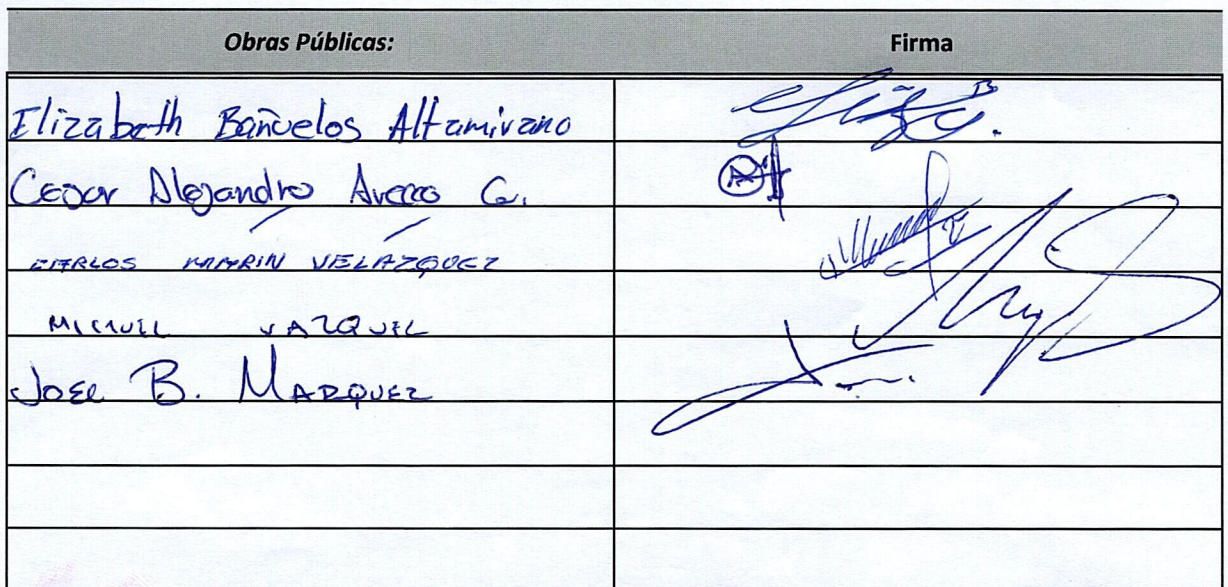 Obras Públicas: Firma
Elizabeth Bañuelos Altamirano
Cesar Alejandro G.
CARLOS MARIN VELAZQUEZ
MIGUEL VAZQUEZ
JOEL B. MARQUEZ